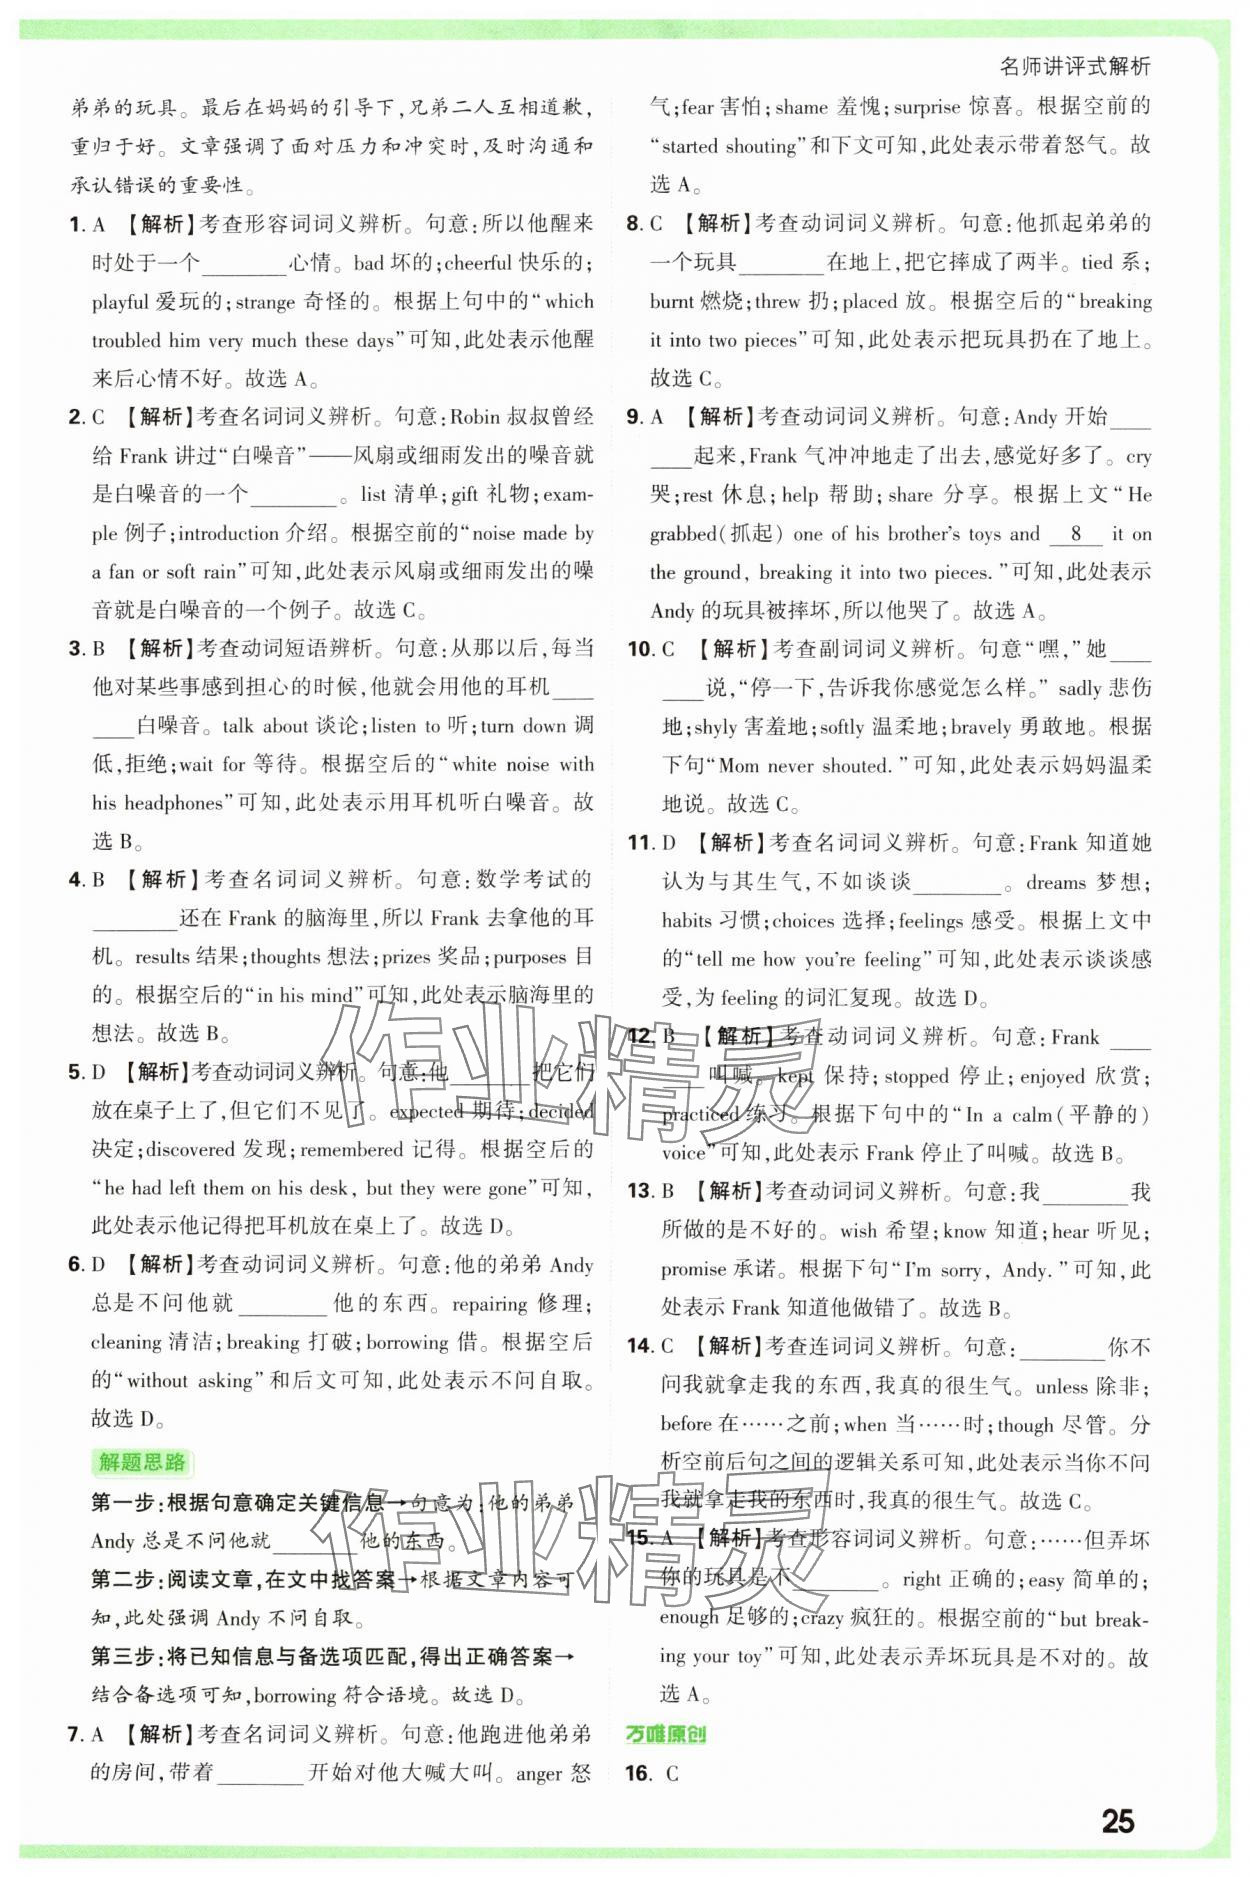 名师讲评式解析
弟弟的玩具。最后在妈妈的引导下,兄弟二人互相道歉,
重归于好。文章强调了面对压力和冲突时,及时沟通和
承认错误的重要性。
1. A 【解析】考查形容词词义辨析。句意:所以他醒来
时处于一个________心情。bad 坏的;cheerful 快乐的;
playful 爱玩的;strange 奇怪的。根据上句中的“which
troubled him very much these days”可知,此处表示他醒
来后心情不好。故选 A。
2. C 【解析】考查名词词义辨析。句意:Robin 叔叔曾经
给 Frank 讲过“白噪音”——风扇或细雨发出的噪音就
是白噪音的一个________。list 清单;gift 礼物;exam-
ple 例子;introduction 介绍。根据空前的“noise made by
a fan or soft rain”可知,此处表示风扇或细雨发出的噪
音就是白噪音的一个例子。故选 C。
3. B 【解析】考查动词短语辨析。句意:从那以后,每当
他对某些事感到担心的时候,他就会用他的耳机____
____白噪音。talk about 谈论;listen to 听;turn down 调
低,拒绝;wait for 等待。根据空后的“white noise with
his headphones”可知,此处表示用耳机听白噪音。故
选 B。
4. B 【解析】考查名词词义辨析。句意:数学考试的
________还在 Frank 的脑海里,所以 Frank 去拿他的耳
机。results 结果;thoughts 想法;prizes 奖品;purposes 目
的。根据空后的“in his mind”可知,此处表示脑海里的
想法。故选 B。
5. D 【解析】考查动词词义辨析。句意:他________把它们
放在桌子上了,但它们不见了。expected 期待;decided
决定;discovered 发现;remembered 记得。根据空后的
“he had left them on his desk, but they were gone”可知,
此处表示他记得把耳机放在桌上了。故选 D。
6. D 【解析】考查动词词义辨析。句意:他的弟弟 Andy
总是不问他就________他的东西。repairing 修理;
cleaning 清洁;breaking 打破;borrowing 借。根据空后
的“without asking”和后文可知,此处表示不问自取。
故选 D。
解题思路
第一步:根据句意确定关键信息→句意为:他的弟弟
Andy 总是不问他就________他的东西。
第二步:阅读文章,在文中找答案→根据文章内容可
知,此处强调 Andy 不问自取。
第三步:将已知信息与备选项匹配,得出正确答案→
结合备选项可知,borrowing 符合语境。故选 D。
7. A 【解析】考查名词词义辨析。句意:他跑进他弟弟
的房间,带着________开始对他大喊大叫。anger 怒
气;fear 害怕;shame 羞愧;surprise 惊喜。根据空前的
“started shouting”和下文可知,此处表示带着怒气。故
选 A。
8. C 【解析】考查动词词义辨析。句意:他抓起弟弟的
一个玩具________在地上,把它摔成了两半。tied 系;
burnt 燃烧;threw 扔;placed 放。根据空后的“breaking
it into two pieces”可知,此处表示把玩具扔在了地上。
故选 C。
9. A 【解析】考查动词词义辨析。句意:Andy 开始____
____起来,Frank 气冲冲地走了出去,感觉好多了。cry
哭;rest 休息;help 帮助;share 分享。根据上文“He
grabbed(抓起) one of his brother's toys and 8 it on
the ground, breaking it into two pieces.”可知,此处表示
Andy 的玩具被摔坏,所以他哭了。故选 A。
10. C 【解析】考查副词词义辨析。句意“嘿,”她____
____说,“停一下,告诉我你感觉怎么样。”sadly 悲伤
地;shyly 害羞地;softly 温柔地;bravely 勇敢地。根据
下句“Mom never shouted.”可知,此处表示妈妈温柔
地说。故选 C。
11. D 【解析】考查名词词义辨析。句意:Frank 知道她
认为与其生气,不如谈谈________。dreams 梦想;
habits 习惯;choices 选择;feelings 感受。根据上文中
的“tell me how you're feeling”可知,此处表示谈谈感
受,为 feeling 的词汇复现。故选 D。
12. B 【解析】考查动词词义辨析。句意:Frank ____
____叫喊。kept 保持;stopped 停止;enjoyed 欣赏;
practiced 练习。根据下句中的“In a calm(平静的)
voice”可知,此处表示 Frank 停止了叫喊。故选 B。
13. B 【解析】考查动词词义辨析。句意:我________我
所做的是不好的。wish 希望;know 知道;hear 听见;
promise 承诺。根据下句“I'm sorry, Andy.”可知,此
处表示 Frank 知道他做错了。故选 B。
14. C 【解析】考查连词词义辨析。句意:________你不
问我就拿走我的东西,我真的很生气。unless 除非;
before 在……之前;when 当……时;though 尽管。分
析空前后句之间的逻辑关系可知,此处表示当你不问
我就拿走我的东西时,我真的很生气。故选 C。
15. A 【解析】考查形容词词义辨析。句意:……但弄坏
你的玩具是不________。right 正确的;easy 简单的;
enough 足够的;crazy 疯狂的。根据空前的“but break-
ing your toy”可知,此处表示弄坏玩具是不对的。故
选 A。
万唯原创
16. C
25
作业精灵
作业精灵